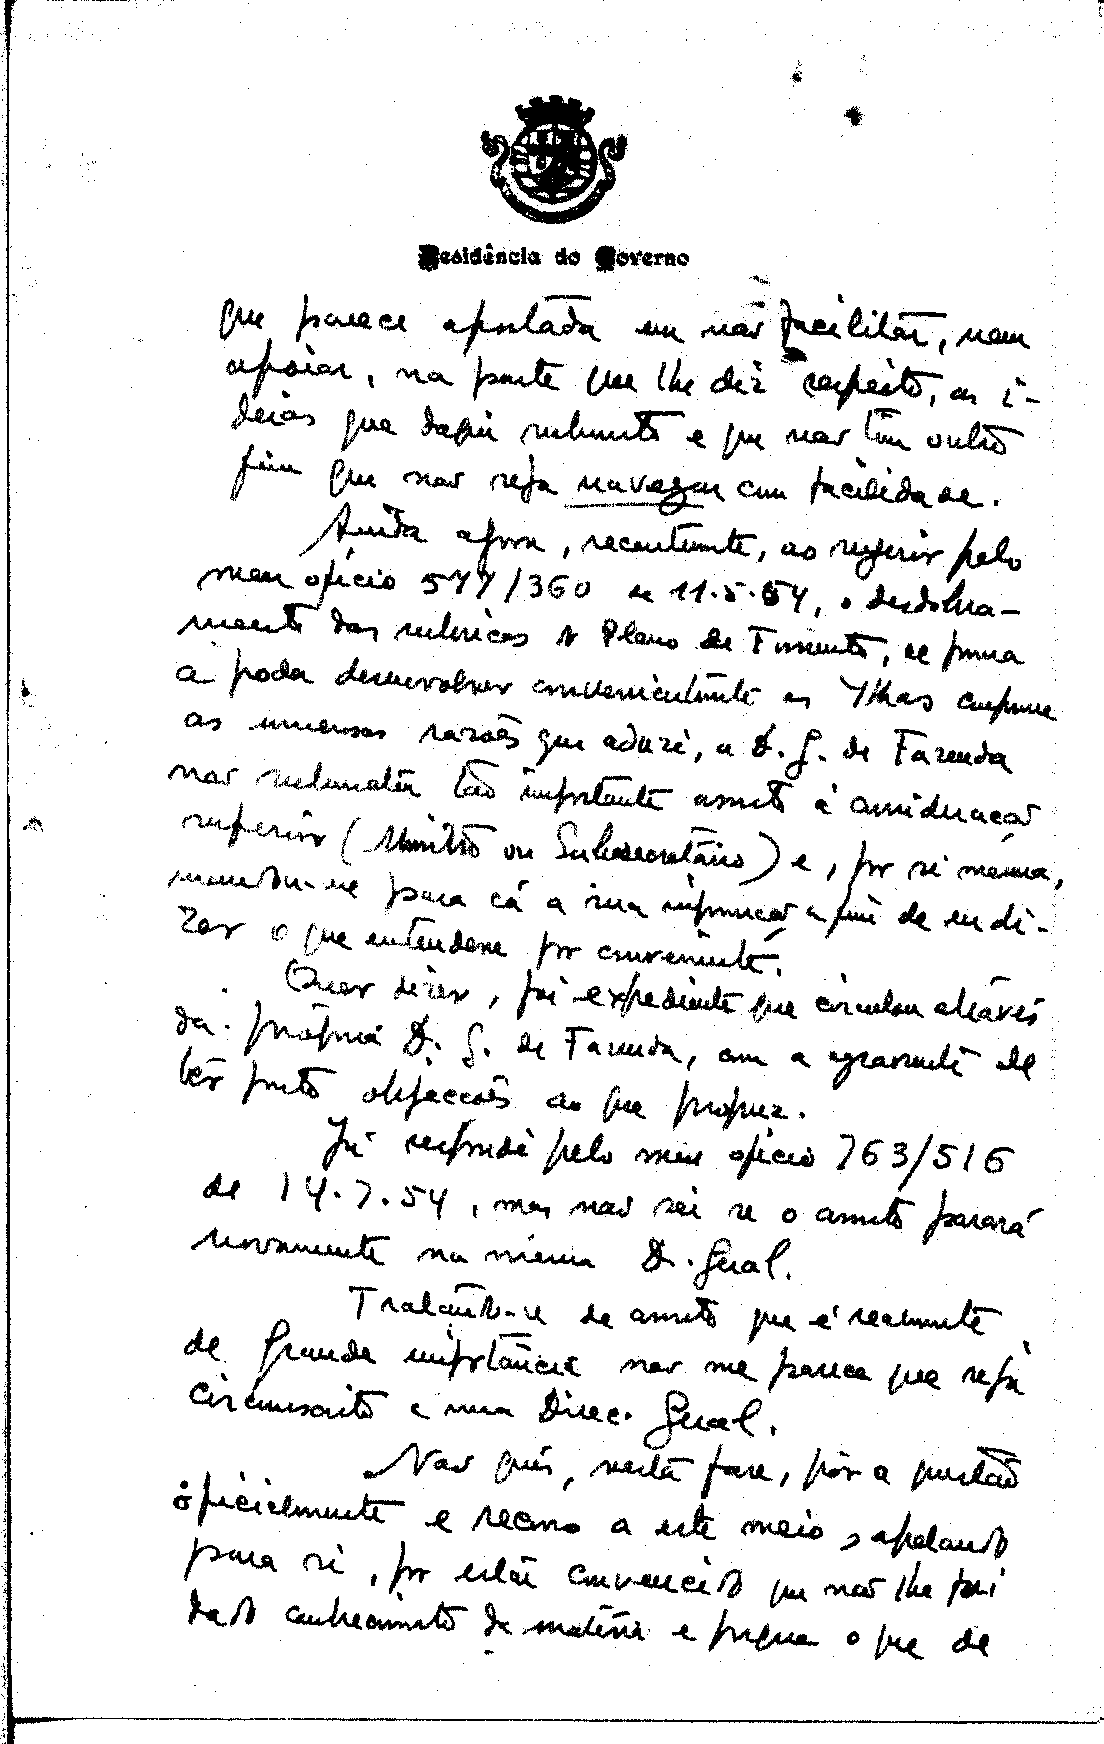 Residência do Governo
que parece apostada em não facilitar, nem
apoiar, na parte que lhe diz respeito, as i-
deias que daqui submeto e que não têm outro
fim que não seja navegar com facilidade.
Ainda agora, recentemente, ao sugerir pelo
meu ofício 577/360 de 11.5.54, o desdobra-
mento das rubricas do Plano de Fomento, de forma
a poder desenvolver convenientemente as Ilhas conforme
as imensas razões que aduzi, a D. G. de Fazenda
não submeteu tão importante assunto à consideração
superior (Ministro ou Subsecretário) e, por si mesma,
mandou-me para cá a sua informação a fim de eu di-
zer o que entendesse por conveniente.
Quer dizer, foi expediente que circulou através
da própria D. G. de Fazenda, com a agravante de
ter posto objecções ao que propuz.
Já respondi pelo meu ofício 763/516
de 14.7.54, mas não sei se o assunto parará
novamente na mesma D. Geral.
Tratando-se de assunto que é realmente
de grande importância não me parece que seja
circunscrito a uma Direc. Geral.
Não quis, nesta fase, pôr a questão
oficialmente e recorro a este meio, apelando
para si, por estar convencido que não lhe foi
dado conhecimento da matéria e porque o que de